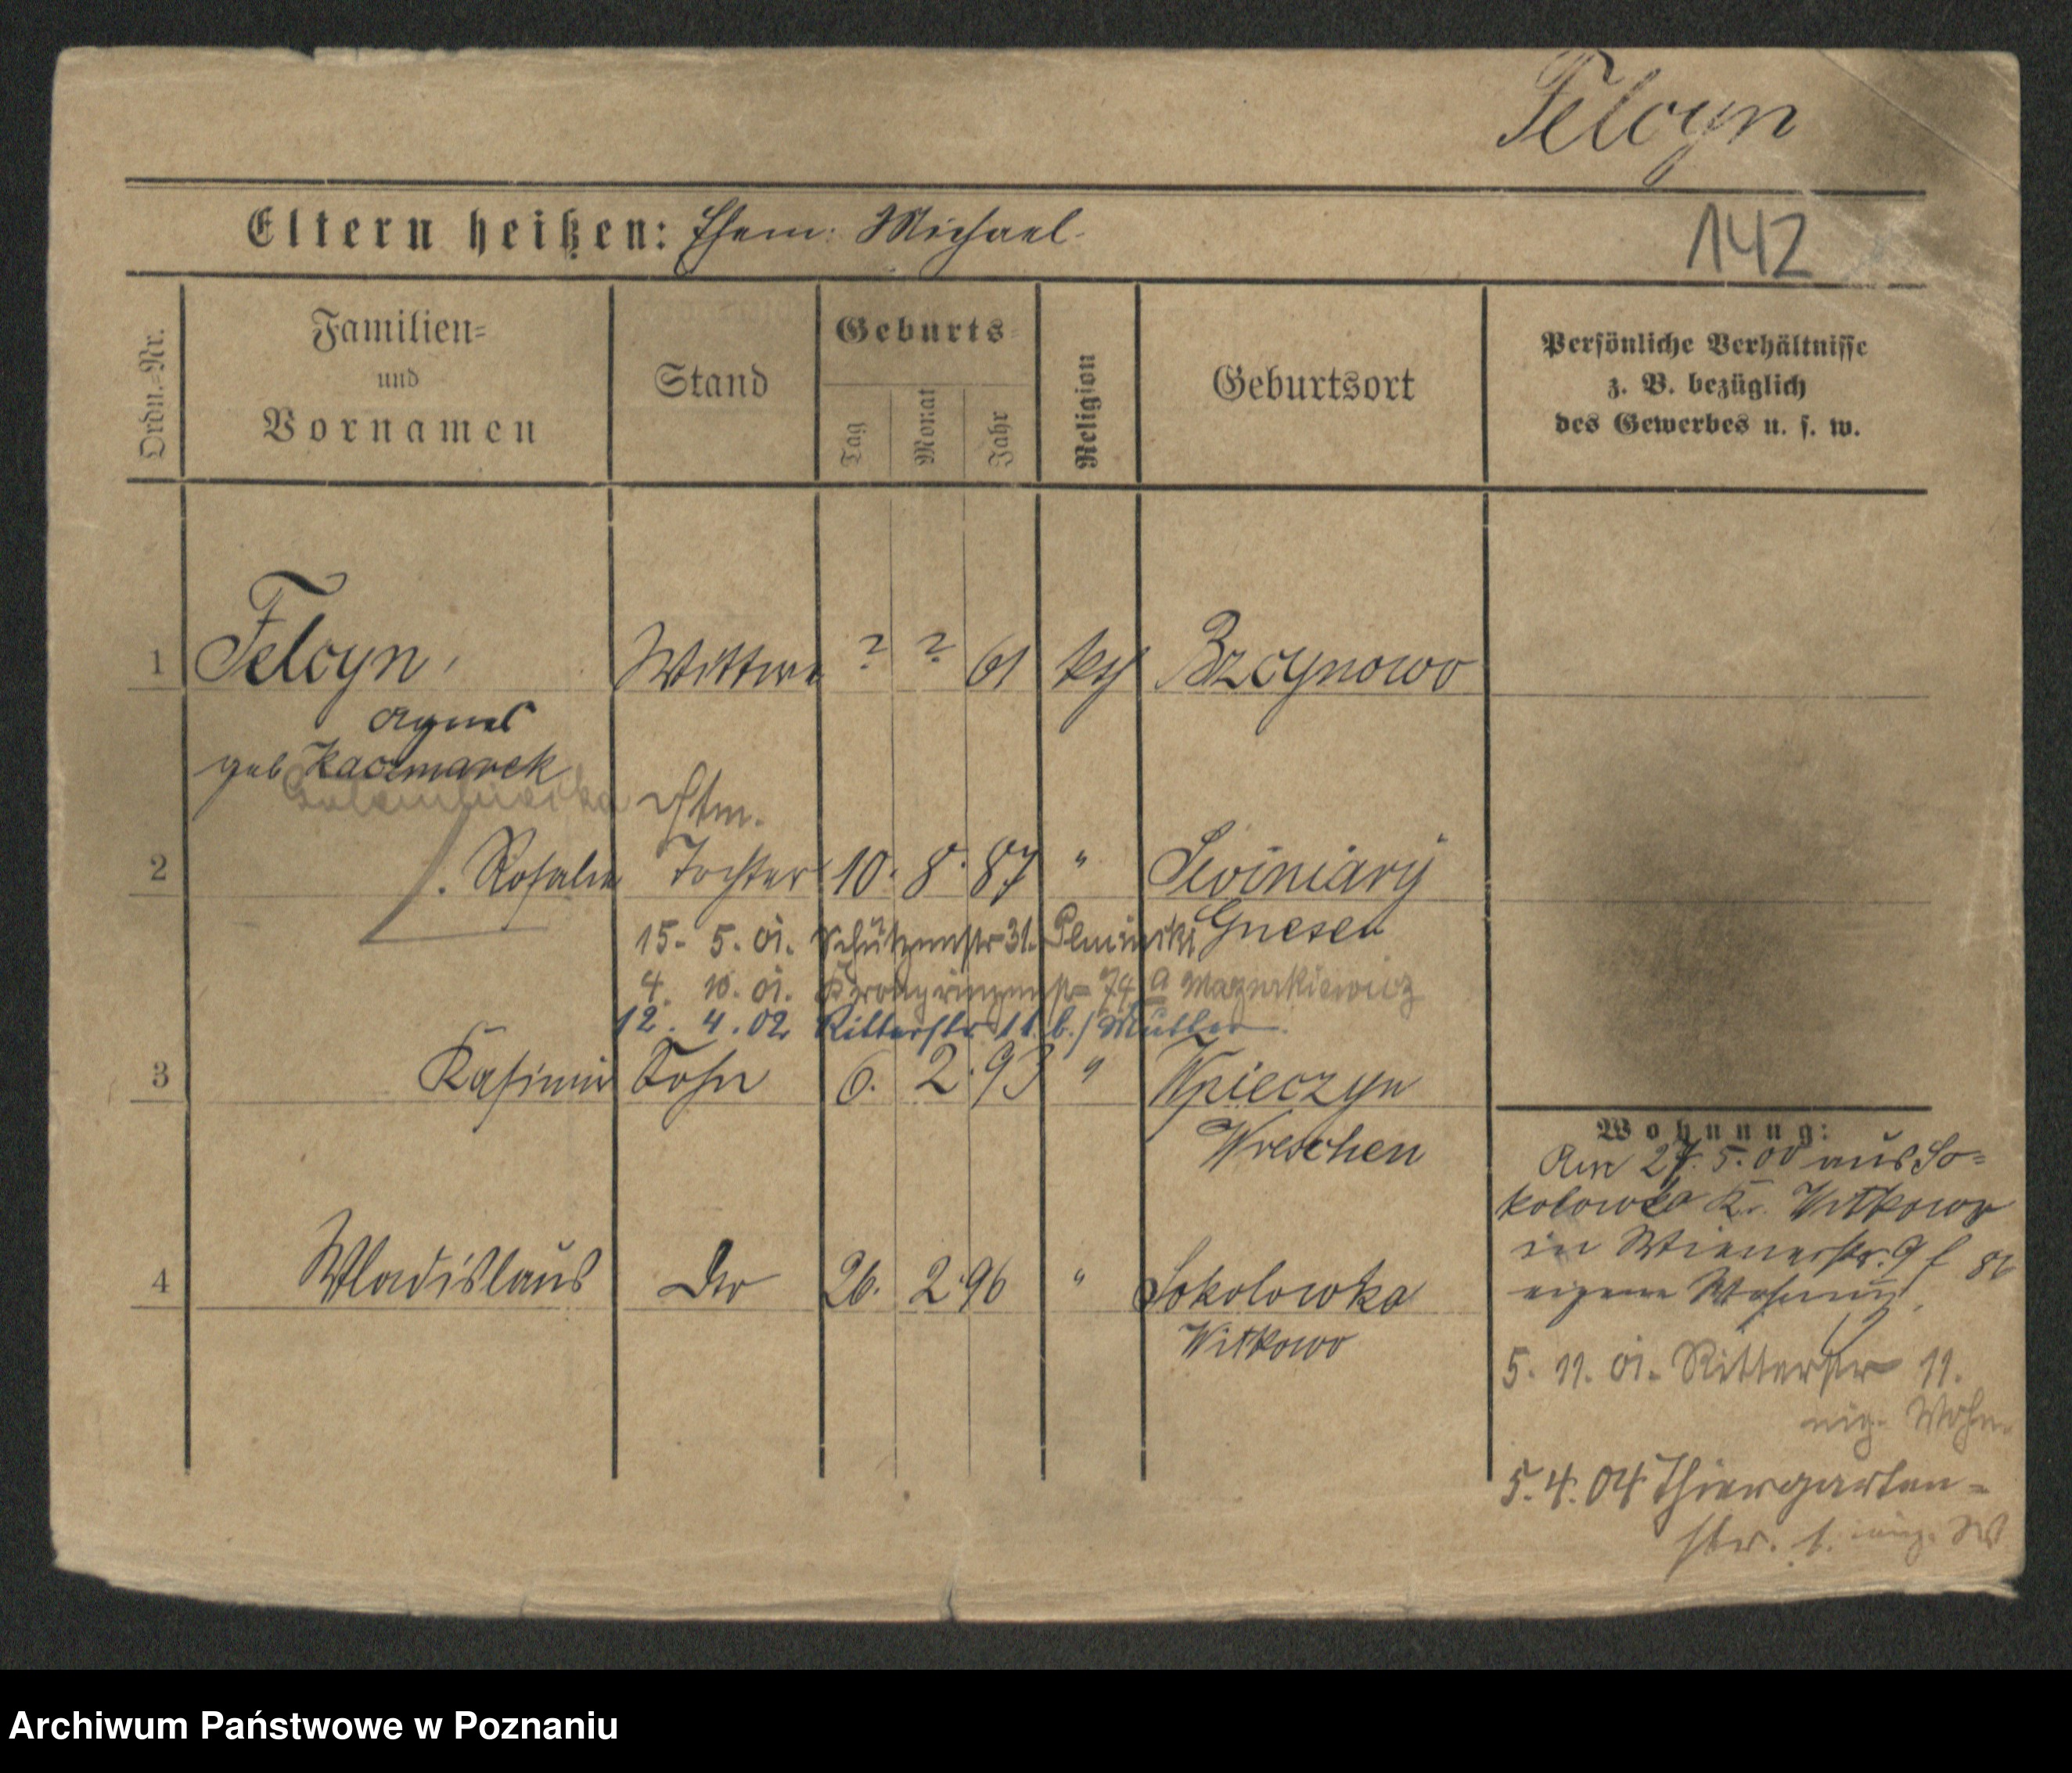 Felcyn
Eltern heißen: Ehem: Michael
142
Ordn.=Nr.
Familien= und Vornamen
Stand
Geburts=
Tag
Monat
Jahr
Religion
Geburtsort
Persönliche Verhältnisse
z. B. bezüglich
des Gewerbes u. s. w.
1 Felcyn, Wittwe ? ? 61 kth Brzynowo
Agnes
geb Kaczmarek
2 Rosalie Tochter 10. 8. 87 " Swiniary
Gnesen
15. 5. 01. Schützenstr 31.
4. 10. 01. Kronprinzenstr 74 a Mazurkiewicz
12. 4. 02 Ritterstr 11 b./Mutter
3 Kasimir Sohn 6. 2. 93 " Wreschen
4 Wladislaus Sokolowka
26. 2. 96 "
Witkowo
Wohnung:
Am 27. 5. 00 aus So=
kolowka K. Witkowo
in Wienerstr. 9
eigene Wohnung
5. 11. 01. Ritterstr 11.
eig. Wohn.
5. 4. 04 Thiergarten=
str. 1. eig. W
Archiwum Państwowe w Poznaniu